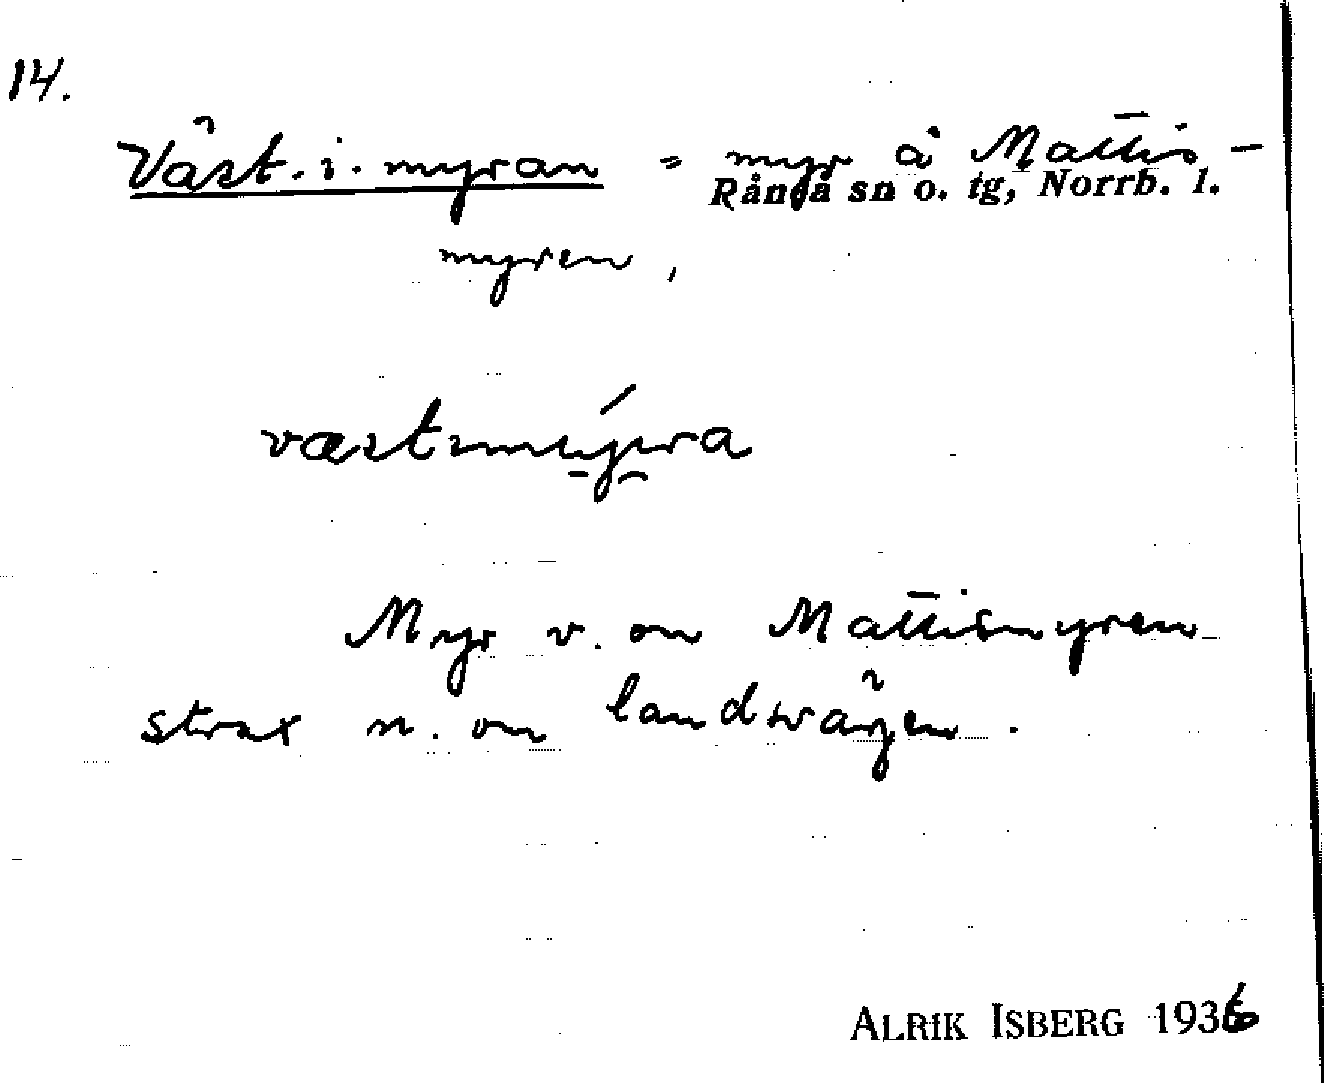 14.
Väst. i. myran = myr å Mattis-
Rånea sn o. tg, Norrb. l.
myren,
Myr v. om Mattismyren
strax n. om landsvägen.
ALRIK ISBERG 1936